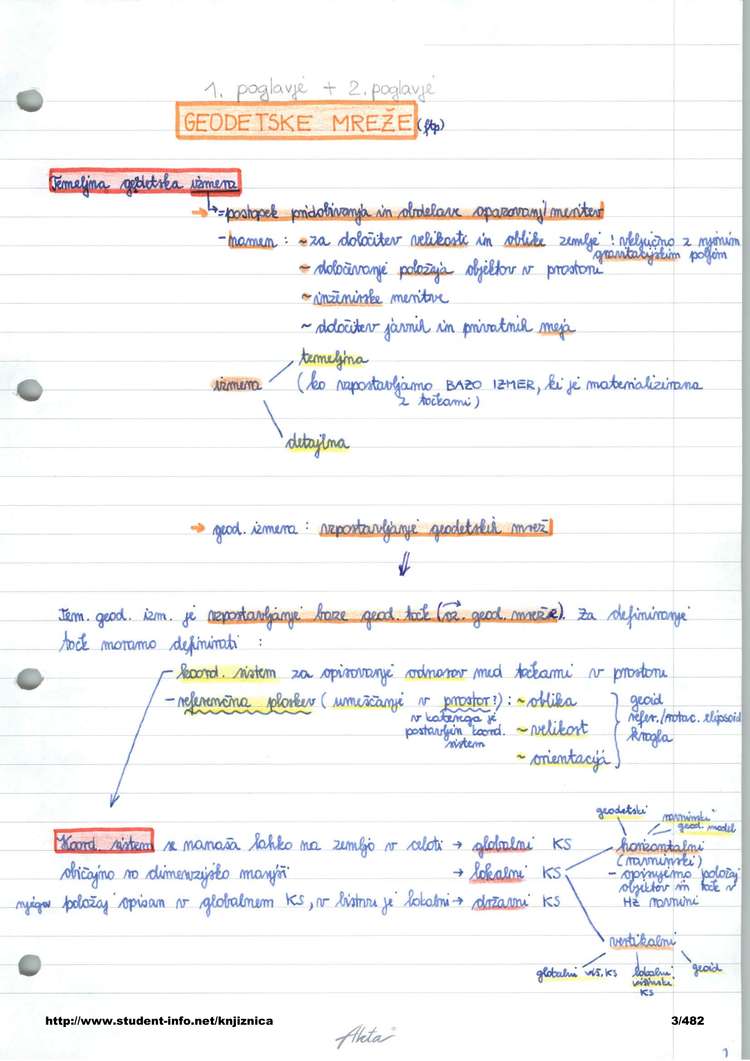 1. poglavje + 2. poglavje
GEODETSKE MREŽE (ftp)
Temeljna geodetska izmera
→ = postopek pridobivanja in obdelave opazovanj/meritev
- namen : ~ za določitev velikosti in oblike zemlje ! vključno z njenim gravitacijskim poljem
~ določevanje položaja objektov v prostoru
~ inženirske meritve
~ določitev javnih in privatnih meja
temeljna
izmera (ko vzpostavljamo BAZO IZMER, ki je materializirana
z točkami)
detajlna
→ geod. izmera : vzpostavljanje geodetskih mrež
⇓
Tem. geod. izm. je vzpostavljanje baze geod. točk (oz. geod. mreže). Za definiranje
točk moramo definirati :
- koord. sistem za opisovanje odnosov med točkami v prostoru
- referenčna ploskev ( umeščanje v prostor!) : ~ oblika
v katerega je
postavljen koord.
sistem
~ velikost
~ orientacija
geoid
refer./rotac. elipsoid
krogla
geodetski
ravninski
geod. model
Koord. sistem se nanaša lahko na zemljo v celoti → globalni KS
običajno so dimenzijsko manjši → lokalni KS
njegov položaj opisan v globalnem KS, v bistvu je lokalni → državni KS
horizontalni
(ravninski)
- opisujemo položaj
objektov in točk v
HZ ravnini
vertikalni
globalni viš. KS
lokalni
višinski
KS
geoid
http://www.student-info.net/knjiznica
3/482
Akta
1